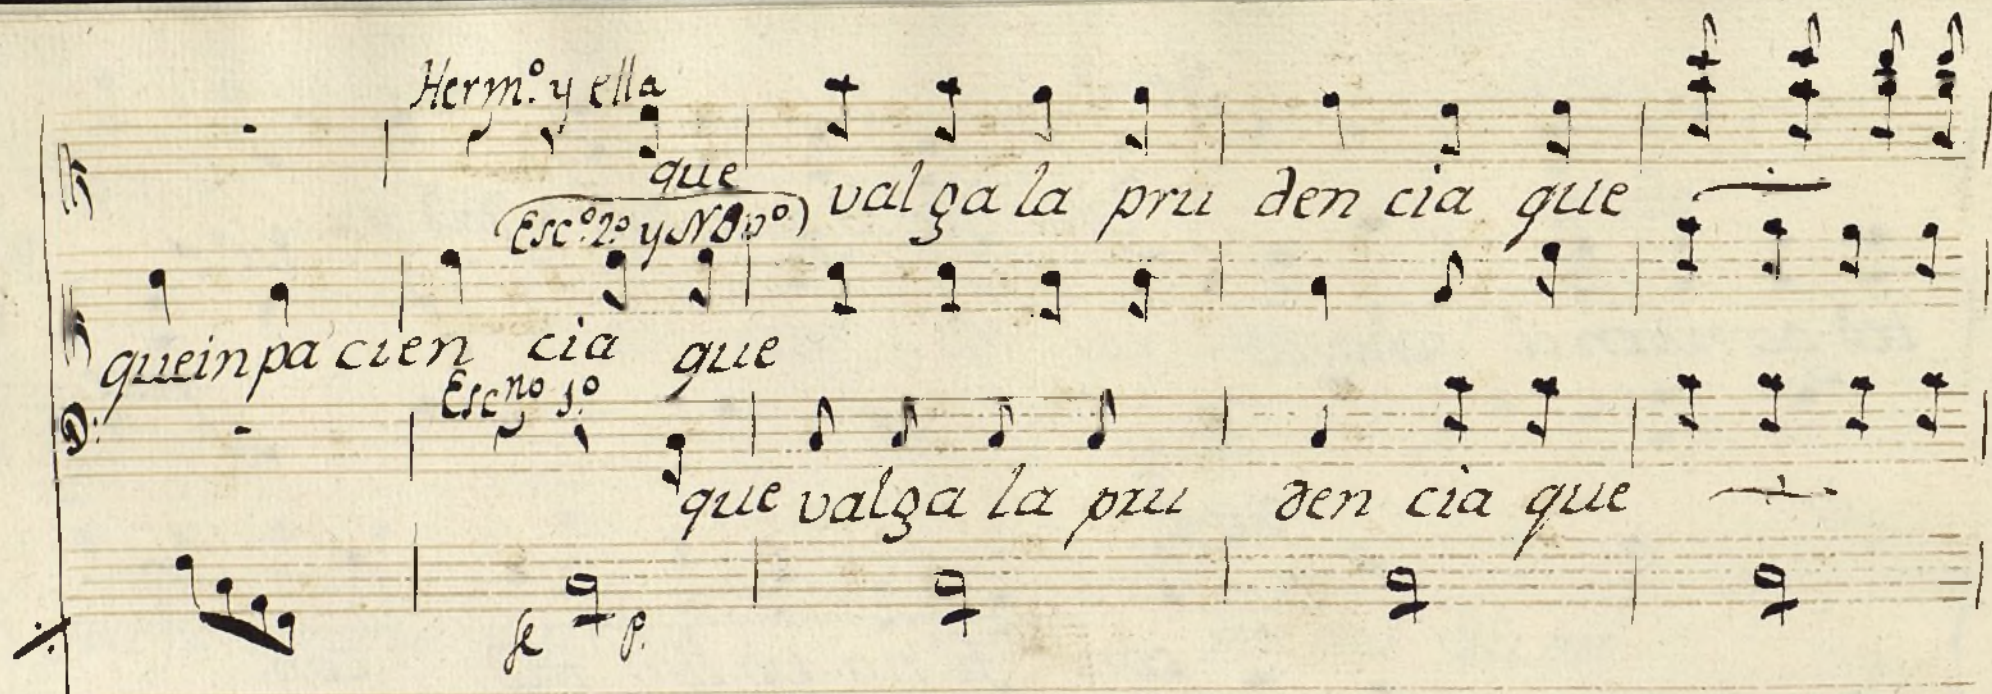 Herm.º y ella
que valga la pru den cia que
Esc.º 2.º y
quein pa cien cia que
Esc.no 1.º
que valga la pru den cia que
fe p.